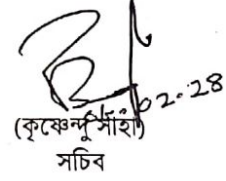 02.28
(কৃষ্ণেন্দু সাহা)
সচিব